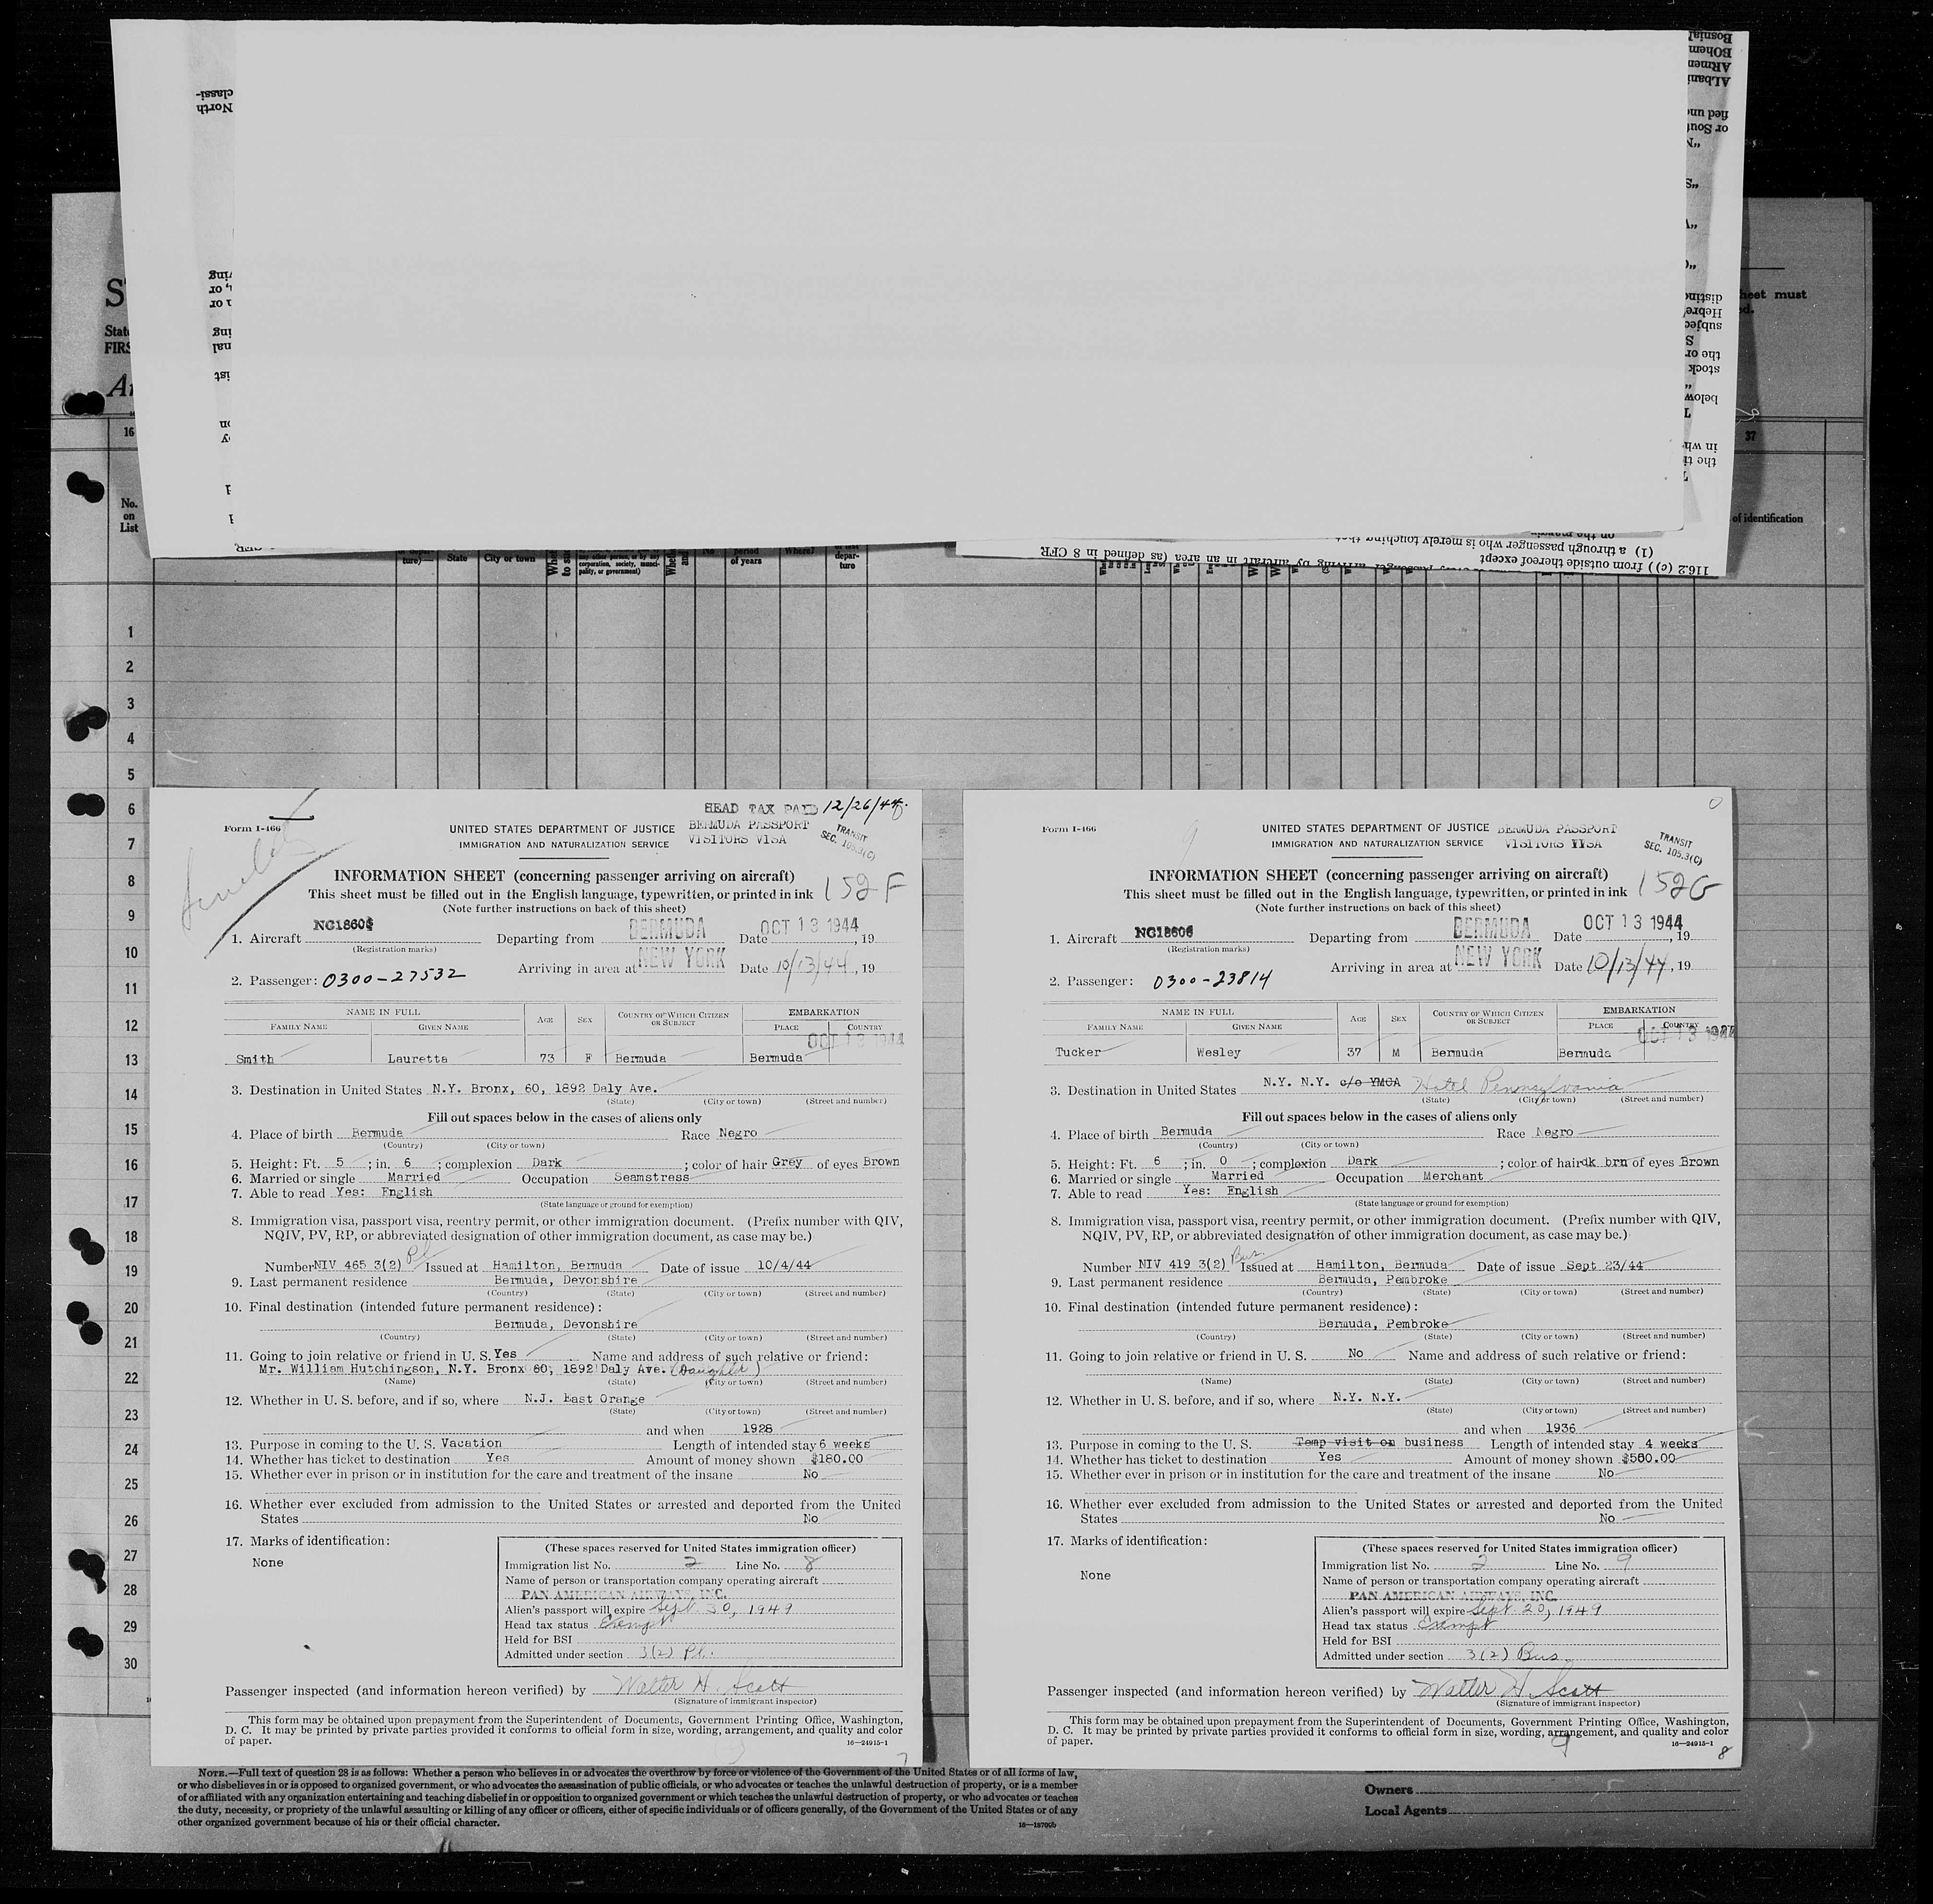 classi-
North
ving
, or
n or
ing
nal
ist
on
y
Bosnial
BOhem
ARmen
ALbani
fied und
or Sout
"N
"S
distinc
Hebre
subjec
the or
stock
"
below
T
in wh
the ti
T
State
FIRS
heet must
ed.
16
37
No.
on
List
of identification
State
City or town
corporation, society, munici-
pality, or government)
No
period
of years
Where?
depar-
ture
ture)—
(1) a through passenger who is merely touching
116.2 (c)) from outside thereof except
1
2
3
4
5
6
7
8
9
10
11
12
13
14
15
16
17
18
19
20
21
22
23
24
25
26
27
28
29
30
HEAD TAX PAID 12/26/44
Form I-466
UNITED STATES DEPARTMENT OF JUSTICE
IMMIGRATION AND NATURALIZATION SERVICE
BERMUDA PASSPORT
VISITORS VISA
TRANSIT
SEC. 105.3(C)
INFORMATION SHEET (concerning passenger arriving on aircraft)
This sheet must be filled out in the English language, typewritten, or printed in ink
152 F
(Note further instructions on back of this sheet)
1. Aircraft NC18604 Departing from BERMUDA Date OCT 13 1944, 19
(Registration marks)
Arriving in area at NEW YORK Date 10/13/44, 19
2. Passenger: 0300-27532
NAME IN FULL AGE SEX COUNTRY OF WHICH CITIZEN OR SUBJECT EMBARKATION
FAMILY NAME GIVEN NAME PLACE COUNTRY
OCT 13 1944
Smith Lauretta 73 F Bermuda Bermuda
3. Destination in United States N.Y. Bronx, 60, 1892 Daly Ave.
(State) (City or town) (Street and number)
Fill out spaces below in the cases of aliens only
4. Place of birth Bermuda Race Negro
(Country) (City or town)
5. Height: Ft. 5 ; in. 6 ; complexion Dark ; color of hair Grey of eyes Brown
6. Married or single Married Occupation Seamstress
7. Able to read Yes: English
(State language or ground for exemption)
8. Immigration visa, passport visa, reentry permit, or other immigration document. (Prefix number with QIV,
NQIV, PV, RP, or abbreviated designation of other immigration document, as case may be.)
Number NIV 465 3(2) Pl Issued at Hamilton, Bermuda Date of issue 10/4/44
9. Last permanent residence Bermuda, Devonshire
(Country) (State) (City or town) (Street and number)
10. Final destination (intended future permanent residence):
Bermuda, Devonshire
(Country) (State) (City or town) (Street and number)
11. Going to join relative or friend in U. S. Yes Name and address of such relative or friend:
Mr. William Hutchingson, N.Y. Bronx 60, 1892 Daly Ave. (Daughter)
(Name) (State) (City or town) (Street and number)
12. Whether in U. S. before, and if so, where N.J. East Orange
(State) (City or town) (Street and number)
and when 1928
13. Purpose in coming to the U. S. Vacation Length of intended stay 6 weeks
14. Whether has ticket to destination Yes Amount of money shown $180.00
15. Whether ever in prison or in institution for the care and treatment of the insane No
16. Whether ever excluded from admission to the United States or arrested and deported from the United
States No
17. Marks of identification:
None
(These spaces reserved for United States immigration officer)
Immigration list No. 2 Line No. 8
Name of person or transportation company operating aircraft
PAN AMERICAN AIRWAYS, INC.
Alien's passport will expire Sept. 30, 1949
Head tax status Exempt
Held for BSI
Admitted under section 3(2) Pl.
Passenger inspected (and information hereon verified) by Walter H. Scott
(Signature of immigrant inspector)
This form may be obtained upon prepayment from the Superintendent of Documents, Government Printing Office, Washington,
D. C. It may be printed by private parties provided it conforms to official form in size, wording, arrangement, and quality and color
of paper.
16—24915-1
7
0
Form I-466
UNITED STATES DEPARTMENT OF JUSTICE
IMMIGRATION AND NATURALIZATION SERVICE
BERMUDA PASSPORT
VISITORS VISA
TRANSIT
SEC. 105.3(C)
9
INFORMATION SHEET (concerning passenger arriving on aircraft)
This sheet must be filled out in the English language, typewritten, or printed in ink
152 G
(Note further instructions on back of this sheet)
1. Aircraft NC18606 Departing from BERMUDA Date OCT 13 1944, 19
(Registration marks)
Arriving in area at NEW YORK Date 10/13/44, 19
2. Passenger: 0300-23814
NAME IN FULL AGE SEX COUNTRY OF WHICH CITIZEN OR SUBJECT EMBARKATION
FAMILY NAME GIVEN NAME PLACE COUNTRY
OCT 13 1944
Tucker Wesley 37 M Bermuda Bermuda
3. Destination in United States N.Y. N.Y. c/o YMCA Hotel Pennsylvania
(State) (City or town) (Street and number)
Fill out spaces below in the cases of aliens only
4. Place of birth Bermuda Race Negro
(Country) (City or town)
5. Height: Ft. 6 ; in. 0 ; complexion Dark ; color of hair dk brn of eyes Brown
6. Married or single Married Occupation Merchant
7. Able to read Yes: English
(State language or ground for exemption)
8. Immigration visa, passport visa, reentry permit, or other immigration document. (Prefix number with QIV,
NQIV, PV, RP, or abbreviated designation of other immigration document, as case may be.)
Number NIV 419 3(2) Bus. Issued at Hamilton, Bermuda Date of issue Sept 23/44
9. Last permanent residence Bermuda, Pembroke
(Country) (State) (City or town) (Street and number)
10. Final destination (intended future permanent residence):
Bermuda, Pembroke
(Country) (State) (City or town) (Street and number)
11. Going to join relative or friend in U. S. No Name and address of such relative or friend:
(Name) (State) (City or town) (Street and number)
12. Whether in U. S. before, and if so, where N.Y. N.Y.
(State) (City or town) (Street and number)
and when 1936
13. Purpose in coming to the U. S. Temp visit on business Length of intended stay 4 weeks
14. Whether has ticket to destination Yes Amount of money shown $500.00
15. Whether ever in prison or in institution for the care and treatment of the insane No
16. Whether ever excluded from admission to the United States or arrested and deported from the United
States No
17. Marks of identification:
None
(These spaces reserved for United States immigration officer)
Immigration list No. 2 Line No. 9
Name of person or transportation company operating aircraft
PAN AMERICAN AIRWAYS, INC.
Alien's passport will expire Sept. 20, 1949
Head tax status Exempt
Held for BSI
Admitted under section 3(2) Bus.
Passenger inspected (and information hereon verified) by Walter H. Scott
(Signature of immigrant inspector)
This form may be obtained upon prepayment from the Superintendent of Documents, Government Printing Office, Washington,
D. C. It may be printed by private parties provided it conforms to official form in size, wording, arrangement, and quality and color
of paper.
16—24915-1
8
NOTE.—Full text of question 28 is as follows: Whether a person who believes in or advocates the overthrow by force or violence of the Government of the United States or of all forms of law,
or who disbelieves in or is opposed to organized government, or who advocates the assassination of public officials, or who advocates or teaches the unlawful destruction of property, or is a member
of or affiliated with any organization entertaining and teaching disbelief in or opposition to organized government or which teaches the unlawful destruction of property, or who advocates or teaches
the duty, necessity, or propriety of the unlawful assaulting or killing of any officer or officers, either of specific individuals or of officers generally, of the Government of the United States or of any
other organized government because of his or their official character.
16—18700b
Owners
Local Agents